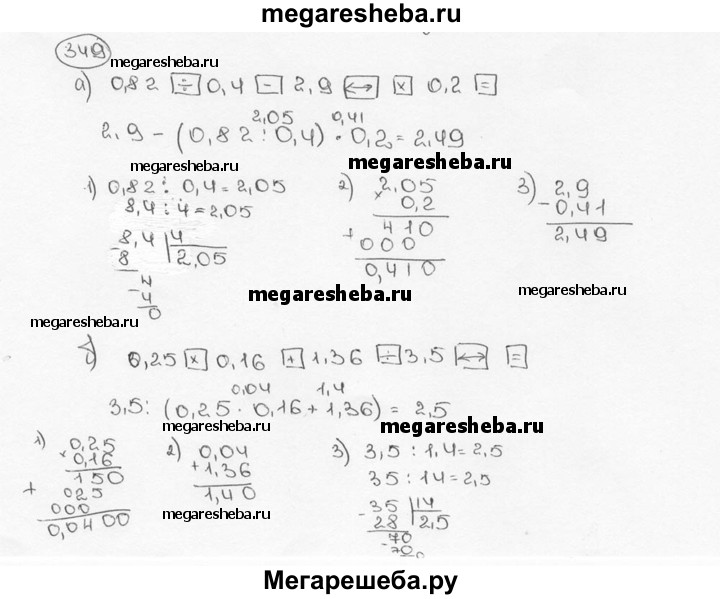 megaresheba.ru
349
megaresheba.ru
а) 0,82 ÷ 0,4 - 2,9 ↔ × 0,2 =
2,05 0,41
2,9 - (0,82 : 0,4) · 0,2 = 2,49
megaresheba.ru megaresheba.ru
1) 0,82 : 0,4 = 2,05
8,4 : 4 = 2,05
8,4 | 4
- 8 | 2,05
4
- 4
0
2) 2,05
× 0,2
410
+ 000
0,410
3) 2,9
- 0,41
2,49
megaresheba.ru megaresheba.ru
megaresheba.ru
б) 0,25 × 0,16 + 1,36 ÷ 3,5 ↔ =
0,04 1,4
3,5 : (0,25 · 0,16 + 1,36) = 2,5
megaresheba.ru megaresheba.ru
1) 0,25
× 0,16
150
+ 025
000
0,0400
2) 0,04
+ 1,36
1,40
megaresheba.ru
3) 3,5 : 1,4 = 2,5
35 : 14 = 2,5
35 | 14
- 28 | 2,5
70
- 70
0
Мегарешеба.ру